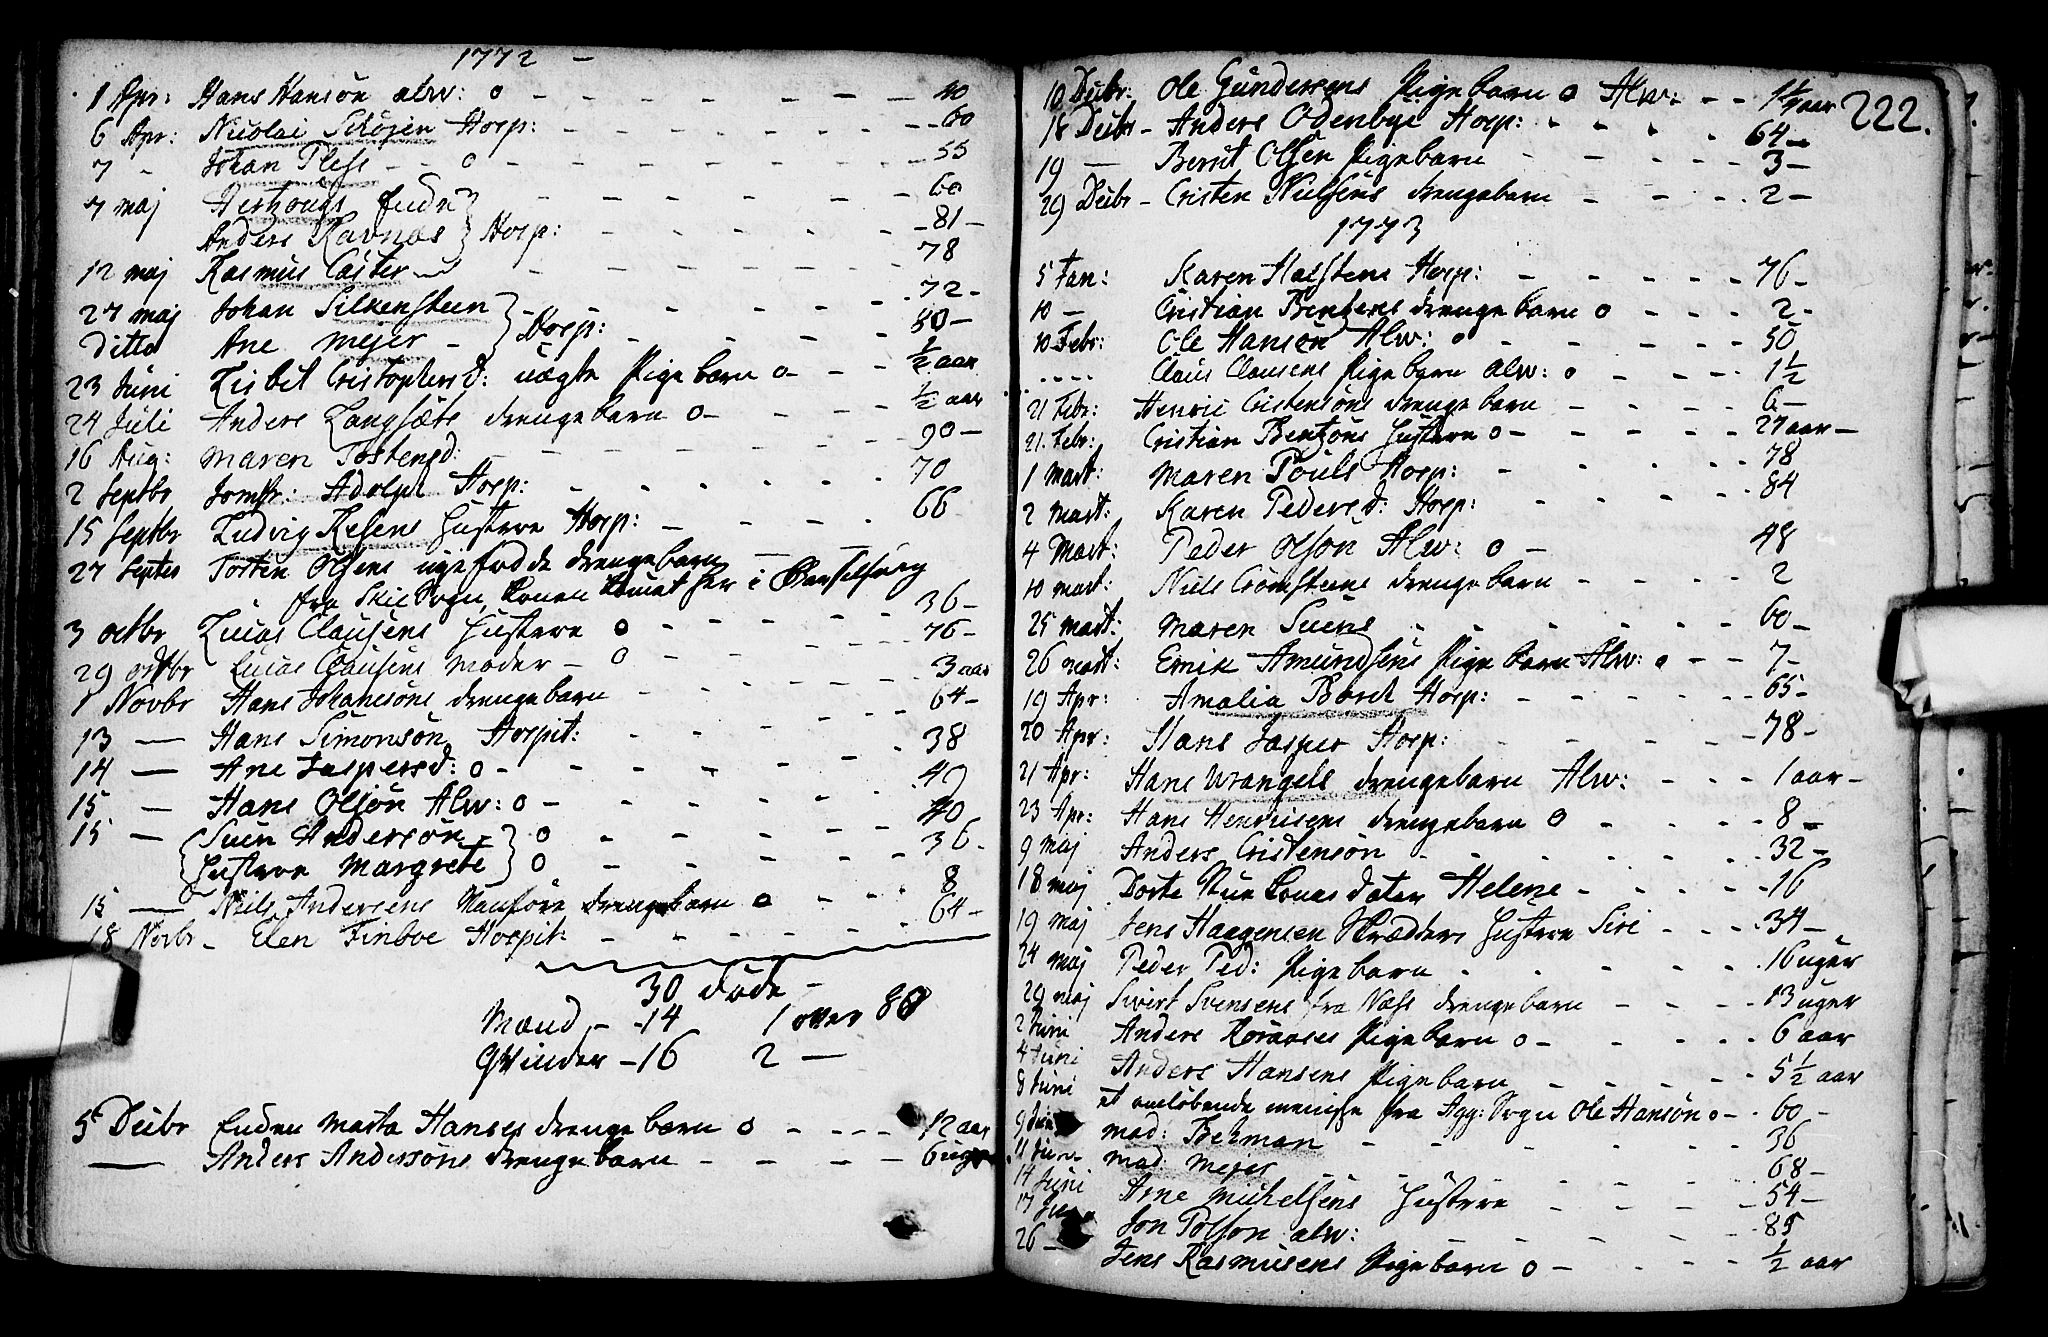 1772 -
1 Apr: Hans Hansøn alw: o - - - - - - - 40
6 Apr: Nicolai Schøjen Hosp: - - - - - - - 60
7 - Johan Plese - - o - - - - - - - 55
7 maj Hertzougs Enche - - - - - - 60
Anders Ravnas Hosp: - - - - - - 81 -
12 maj Rasmus Caster - - - - - - 78
27 maj Johan Silkensteen - - - - - - 72 -
Ditto Ane Mejer - Hosp: - - - - - 80 -
23 Juni Lisbet Cristophersd: uægte Pigebarn o - - - 1/2 aar
24 Juli Anders Langsæts drengebarn o - - - - 1/2 aar
16 Aug: Maren Tostensd: - - - - - - 90 -
2 Septbr Jomfr: Adolph Hosp: - - - - - - 70
15 Septbr Ludvig Resens Hustrue Hosp: - - - - 66
27 Septbr Torsten Olsens nyefødde drengebarn - -
fra Skie Sogn, Konen kommet her i Barselseng
3 octbr Lucas Clausens Hustrue o - - - - - 36 -
29 octbr Lucas Clausens Moder - o - - - - - 76 -
1 Novbr Hans Johansøns drengebarn - - - - - 3 aar
13 — Hans Simonsøn Hospit: - - - - - 64 -
14 — Ane Jespersd: o - - - - - - 38
15 — Hans Olsøn Alw: o - - - - - - 49
15 — Suen Andersøn - o - - - - - 40
Hustrue Margrete o - - - - - 36 -
15 — Niels Andersens drengebarn o - - - 8
18 Novbr - Elen Finboe Hospit: - - - - - - 64 -
30 døde -
Mænd - - 14 1 over 80
Qvinder - 16 2 —
5 Decbr Enken Marta Hanses drengebarn o - - - - 12 aar
— Anders Andersøns drengebarn - - - - 6 uger
222.
10 Decbr: Ole Gundersens Pigebarn o Alw: - - 1 1/4 aar
18 Decbr - Anders Odenbye Hosp: - - - - - 64 -
19 — Bernt Olsen Pigebarn - - - - - 3 -
29 Decbr - Cristen Nielsens drengebarn - - - 2 -
1773
5 Jan: Karen Halstens Hosp: - - - - - 76 -
10 - Cristian Bentzens drengebarn o - - - 2 -
10 Febr: Ole Hansøn Alw: o - - - - - 50
. . . . Claus Clausens Pigebarn alw: o - - - - 1 1/2
21 Febr: Henric Cristensøns drengebarn - - - - 6 -
21. Febr: Cristian Bentzøns Hustrue o - - - - - 27 aar -
1 Mart: Maren Pouls Hosp: - - - - - 78
2 Mart: Karen Pedersd: Hosp: - - - - - 84
4 Mart: Peder Olsøn Alw: o - 48
10 Mart: Niels drengebarn - - - - 2
25 Mart: Maren Suens - - - - - - 60 -
26 Mart: Erick Amundsens Pigebarn Alw: o - - 7 -
19 Apr: Amalia Borch Hosp: - - - - - 65 -
20 Apr: Hans Jasper Hosp: - - - - - 78 -
21 Apr: Hans Wrangels drengebarn Alw: - - - 1 aar -
23 Apr: Hans Henricsens drengebarn o - - - - 8 -
9 maj Anders Cristensøn - - - - - - 32 -
18 maj Dorte Konas dater Helene - - - - 16
19 maj Jens Haagensen Skrædders Hustrue Siri - - - 34 -
24 maj Peder Ped: Pigebarn - - - - - 16 uger
29 maj Sivert Svensens fra Næss drengebarn - - - - 13 uger
2 Juni Anders Pigebarn o - - - - - 6 aar
4 Juni Anders Hansens Pigebarn - - - - - 5 1/2 aar
8 Juni et omløbende menisse fra Agg: Sogn Ole Hansøn o - . 60 -
9 Juni Mad: Bekman - - - - - - 36
11 Juni Mad: Mejer - - - - - - 68 -
14 Juni Arne Michelsens Hustrue - - - - - 54 -
17 Juni Jon Polson alw: - - - - - - 85
26 - Jens Rasmusens Pigebarn o - - - - - 1/2 aar